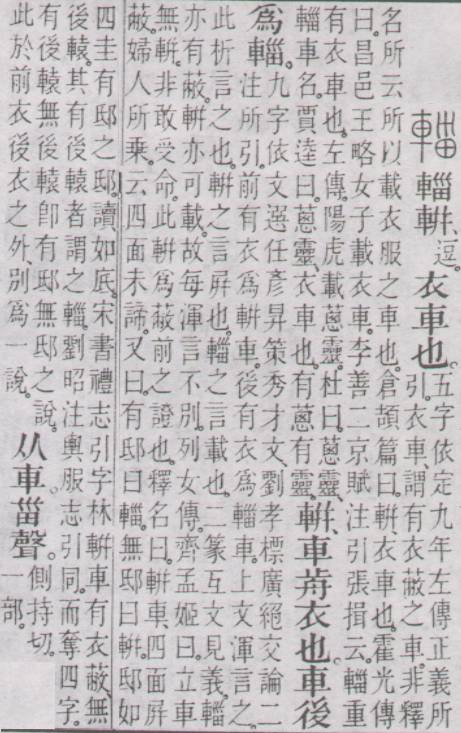 輜 輜軿、逗。衣車也。五字依定九年左傳正義所
引。衣車、謂有衣蔽之車。非釋
名所云所以載衣服之車也。倉頡篇曰。軿、衣車也。霍光傳
曰。昌邑王略女子載衣車。李善二京賦注引張揖云。輜重
有衣車也。左傳。陽虎載蔥靈。杜曰。蔥靈、
輜車名。賈逵曰。蔥靈、衣車也。有蔥有靈。
軿、車歬衣也。車後
爲輜。九字依文選任彥昇策秀才文、劉孝標廣絕交論二
注所引。前有衣爲軿車。後有衣爲輜車。上文渾言之。
此析言之也。軿之言屏也。輜之言載也。二篆互文見義。輜
亦有蔽。軿亦可載。故每渾言不別。列女傳。齊孟姬曰。立車
無軿。非敢受命。此軿爲蔽前之證也。釋名曰。軿車、四面屏
蔽。婦人所乘。云四面未諦。又曰。有邸曰輜。無邸曰軿。邸如
四圭有邸之邸。讀如底。宋書禮志引字林。軿車有衣蔽、無
後轅。其有後轅者謂之輜。劉昭注輿服志引同。而奪四字。
有後轅無後轅卽有邸無邸之說。
此於前衣後衣之外、別爲一說。
从車甾聲。側持切。
一部。